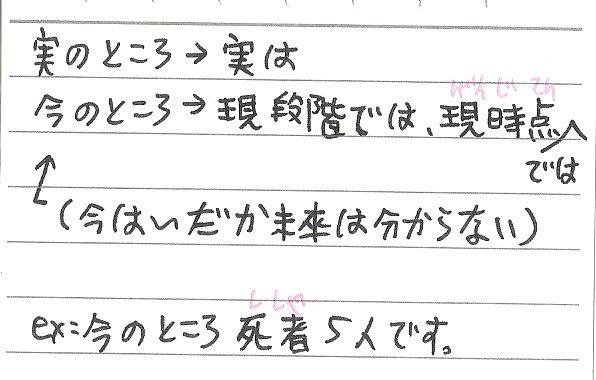 実のところ→実は
げんじてん
今のところ→現段階では、現時点
では
(今はいだか未来は分からない)
ししゃ
ex:今のところ死者5人です。